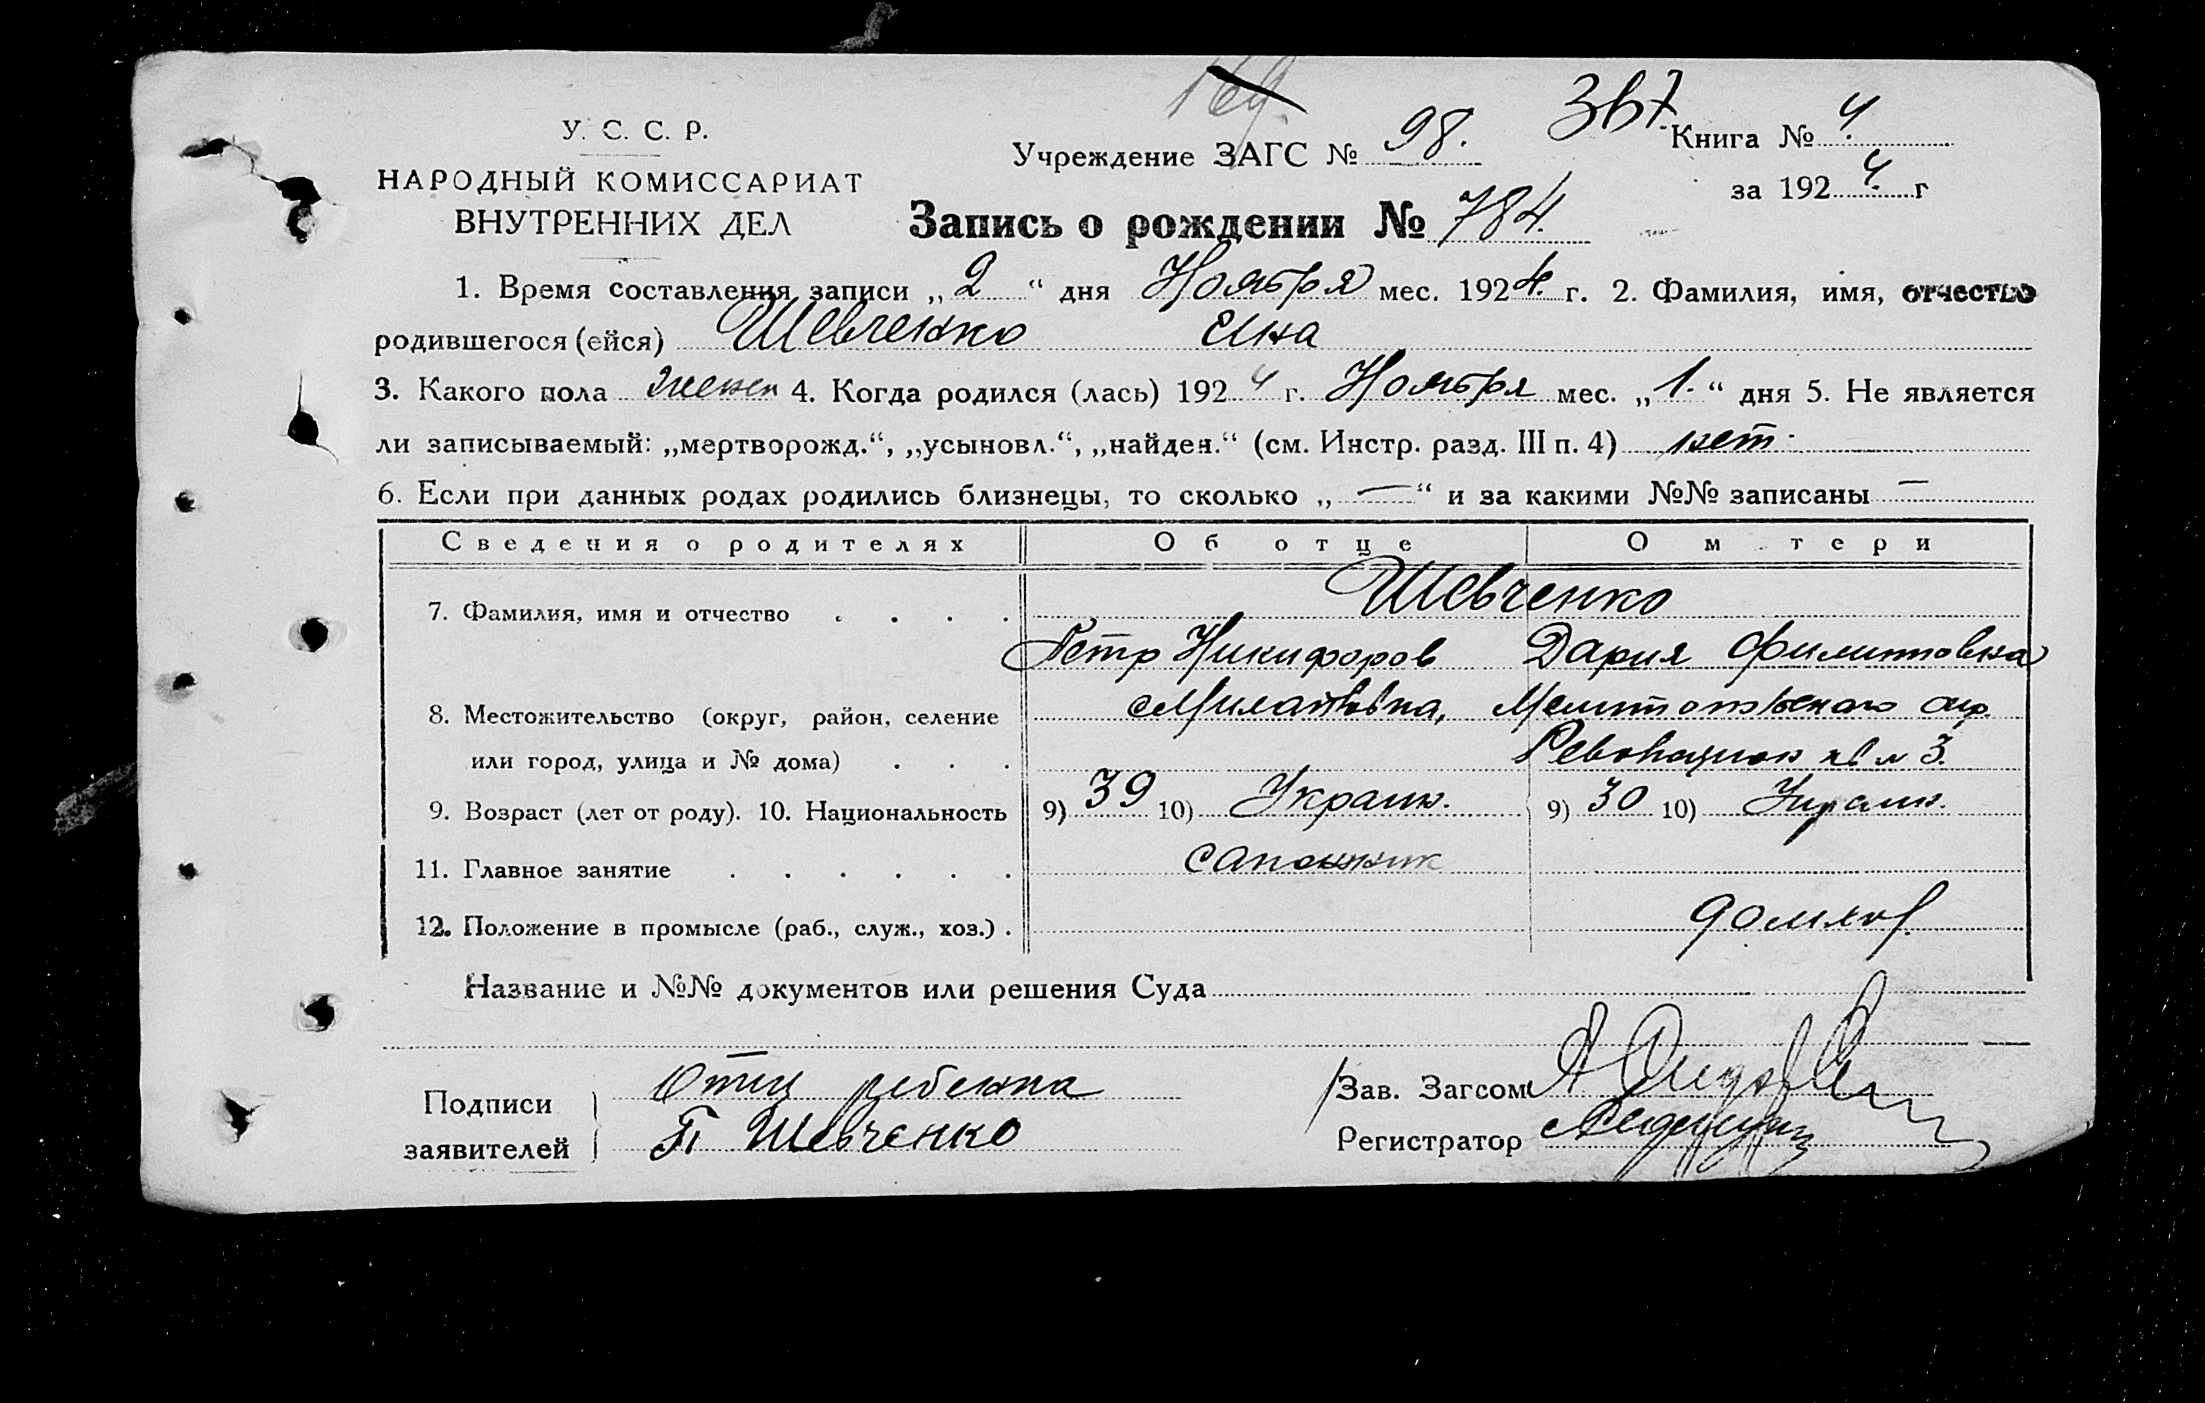 169.
У. С. С. Р.
НАРОДНЫЙ КОМИССАРИАТ
ВНУТРЕННИХ ДЕЛ
Учреждение ЗАГС № 98. 367 Книга № 4.
за 1924. г
Запись о рождении № 784.
1. Время составления записи „2“ дня Ноября мес. 1924. г. 2. Фамилия, имя, отчество
родившегося (ейся) Шевченко
3. Какого пола женск 4. Когда родился (лась) 1924 г. Ноября мес. „1.“ дня 5. Не является
ли записываемый: „мертворожд.“, „усыновл.“, „найден.“ (см. Инстр. разд. III п. 4) нет.
6. Если при данных родах родились близнецы, то сколько „—“ и за какими №№ записаны —
Сведения о родителях Об отце О м тери
7. Фамилия, имя и отчество . . . . Шевченко
Петр Никифоров Дария Филипповна
8. Местожительство (округ, район, селение Мелитопольского окр.
или город, улица и № дома) . . . 3.
9. Возраст (лет от роду). 10. Национальность 9) 39 10) Украин. 9) 30 10) Украин.
11. Главное занятие . . . . . . сапожник
12. Положение в промысле (раб., служ., хоз.) . домхоз.
Название и №№ документов или решения Суда
Подписи Отец ребенка
заявителей П Шевченко
Зав. Загсом
Регистратор